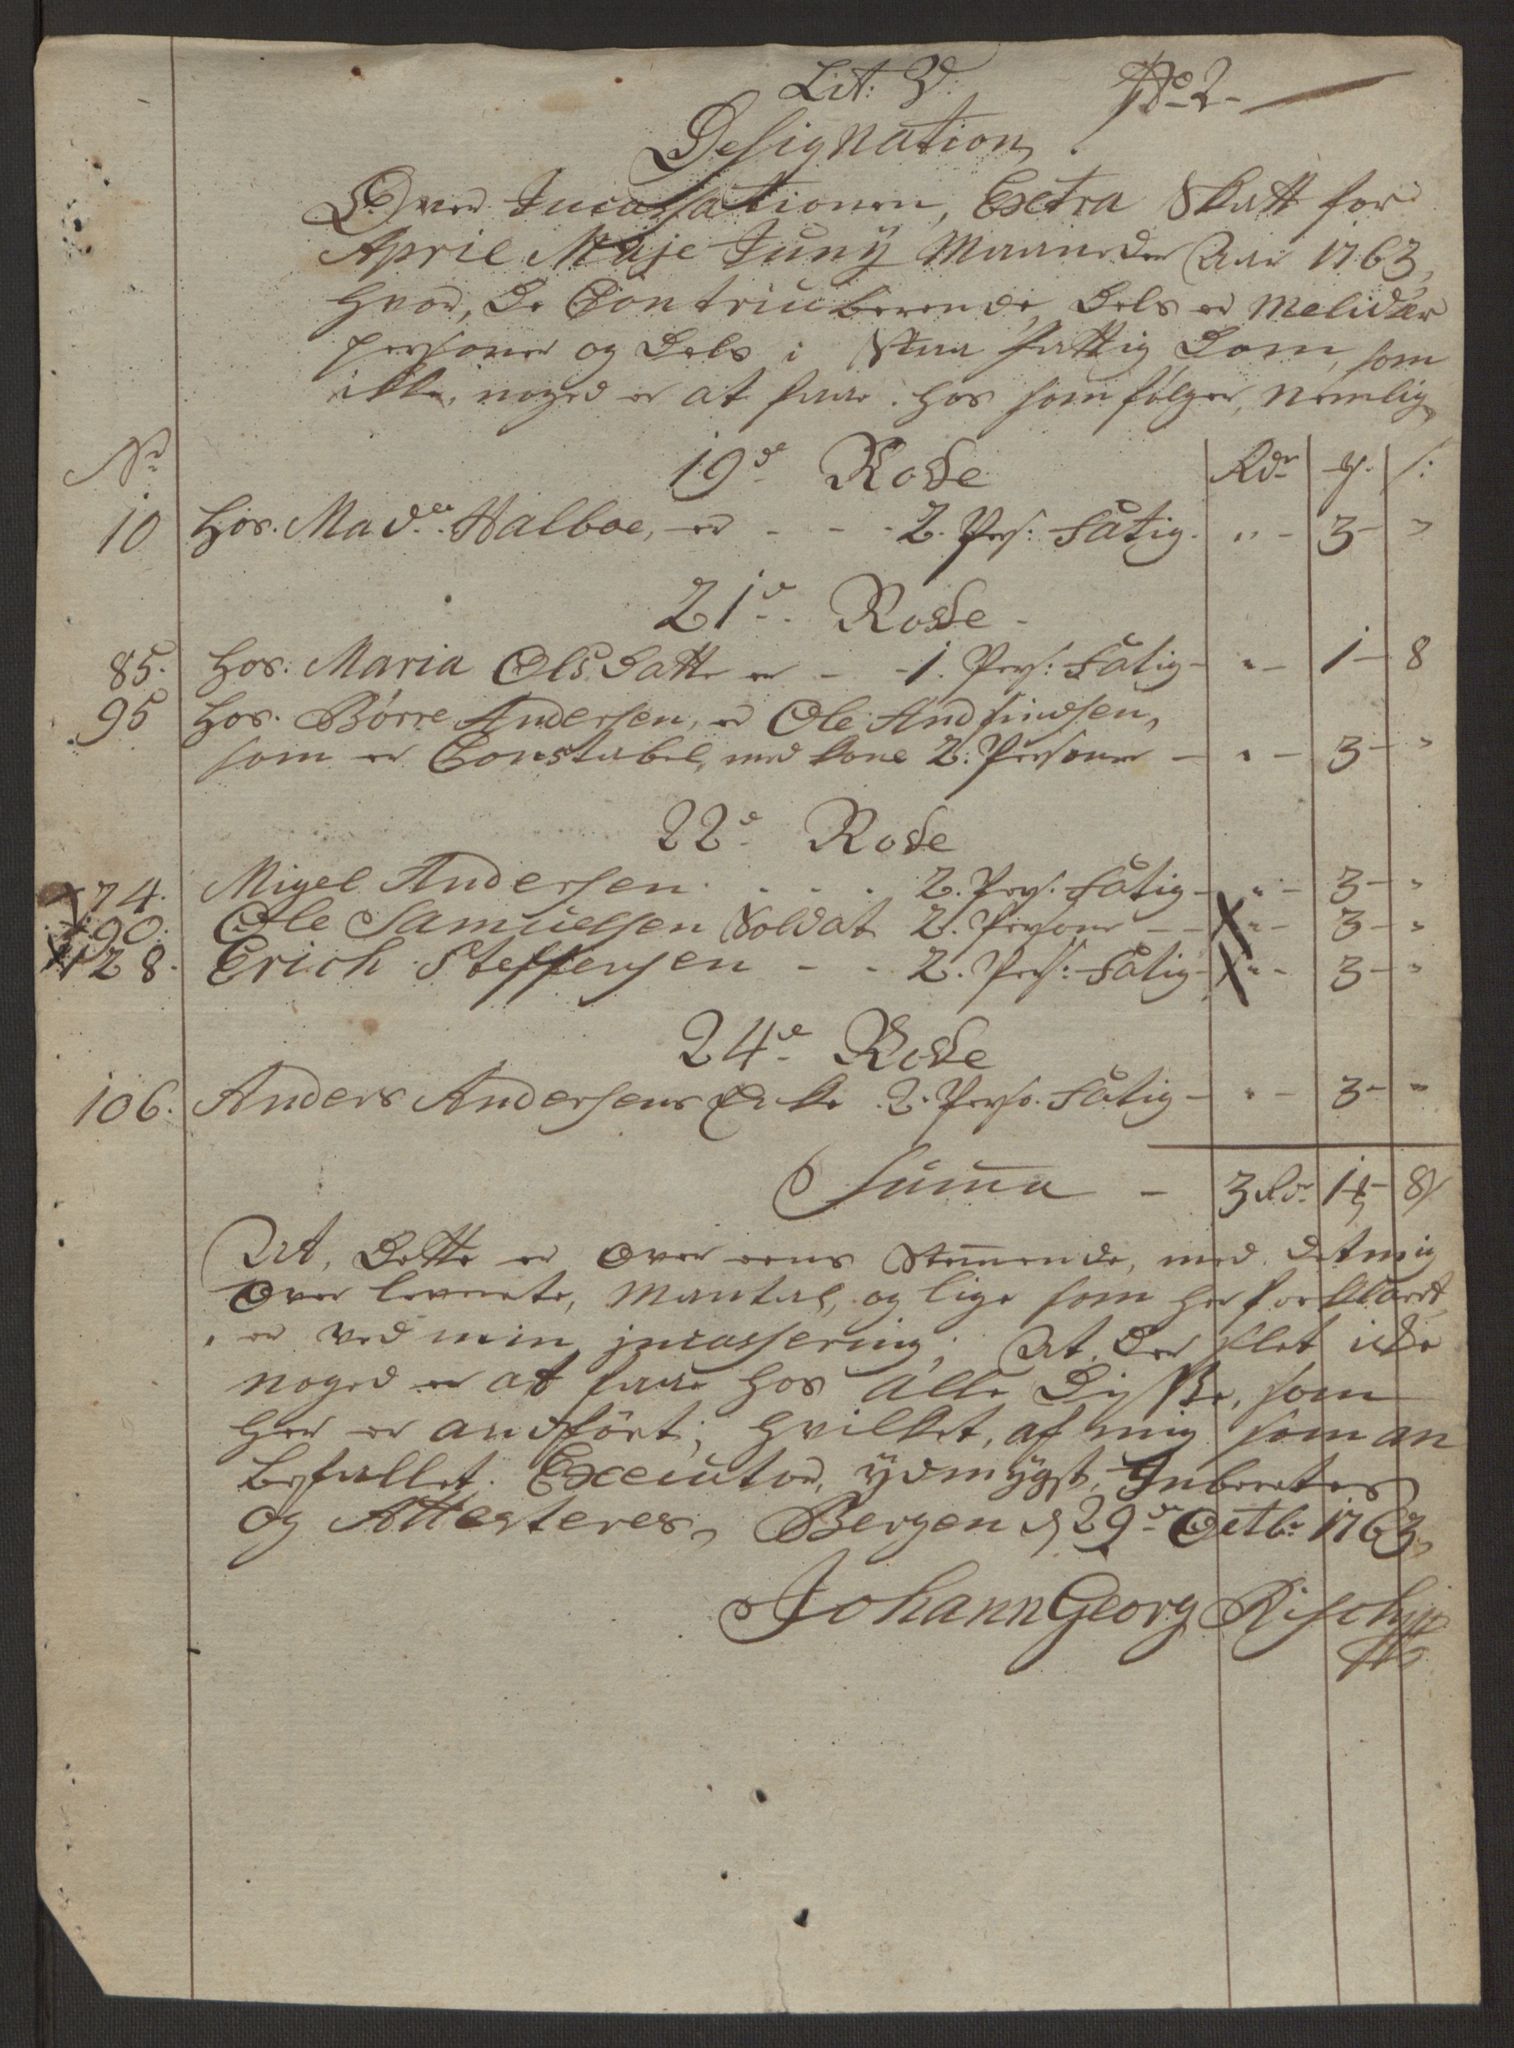 Lit: D: No 2
Designation
Over Incassationen, Extra Skatt for
April Maje Juny Maaneder Aar 1763,
hvor, De Contriuberende, Dels er Melidær
personer og Dels i Staa fattig Dom, som
ikke, noged er at faae. hos som følger, Nemlig
No 19de Rode Rdr ß:
10 hos. Made. Halboe, er - - - 2. Pers: Fatig. " - 3 - "
21de Rode
85. hos. Maria Ols Datter er - - 1. Pers: Fatig - " - 1 - 8
95 hos. Børre Andersen, er Ole
som er Constabel, med kone 2: Personer - " - 3 - "
22de Rode
74. Migel Andersen. . . . 2. Pers. Fatig - " - 3 - "
90. Ole Samuelsen Soldat 2. Persone - - X " - 3 - "
128. Erich Steffensen - - 2. Pers: Fatig - X " - 3 - "
24de Rode
106. Anders Andersens Enke 2. Perso. Fatig - " - 3 - "
Summa - 3 Rdr 1 - 8
At, Dette er over eens Stemmende, med det mig
over leverete, Mantal, og lige som her forklaret,
er ved min jncassering; At Der slet icke
noged er at faae hos alle Disse, som
her er andført; hvilket, af mig som an
befallet Executor, ydmygst, Inberetes
og Attesteres, Bergen d 29de Octbr 1763,
Johann Georg Risch